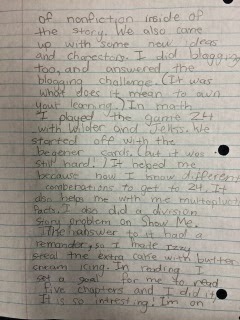 of nonfiction inside of
the story. We also came
up with some new ideas
and charectors. I did blogging
too, and answered the
blogging challenge. (It was
what does it mean to own
your learning.) In math
I played the game 24
with and . We
started off with the
begener cards, but it was
still hard. It helped me
because how I know different
combenations to get to 24. It
also helps me with me multipluct
facts. I also did a division
story problem on Show Me.
The answer to it had a
remander, so I made
steal the extra cake with butter
cream icing. In reading I
set a goal for me to read
five chapters and I did it.
It is so intresting! I'm on